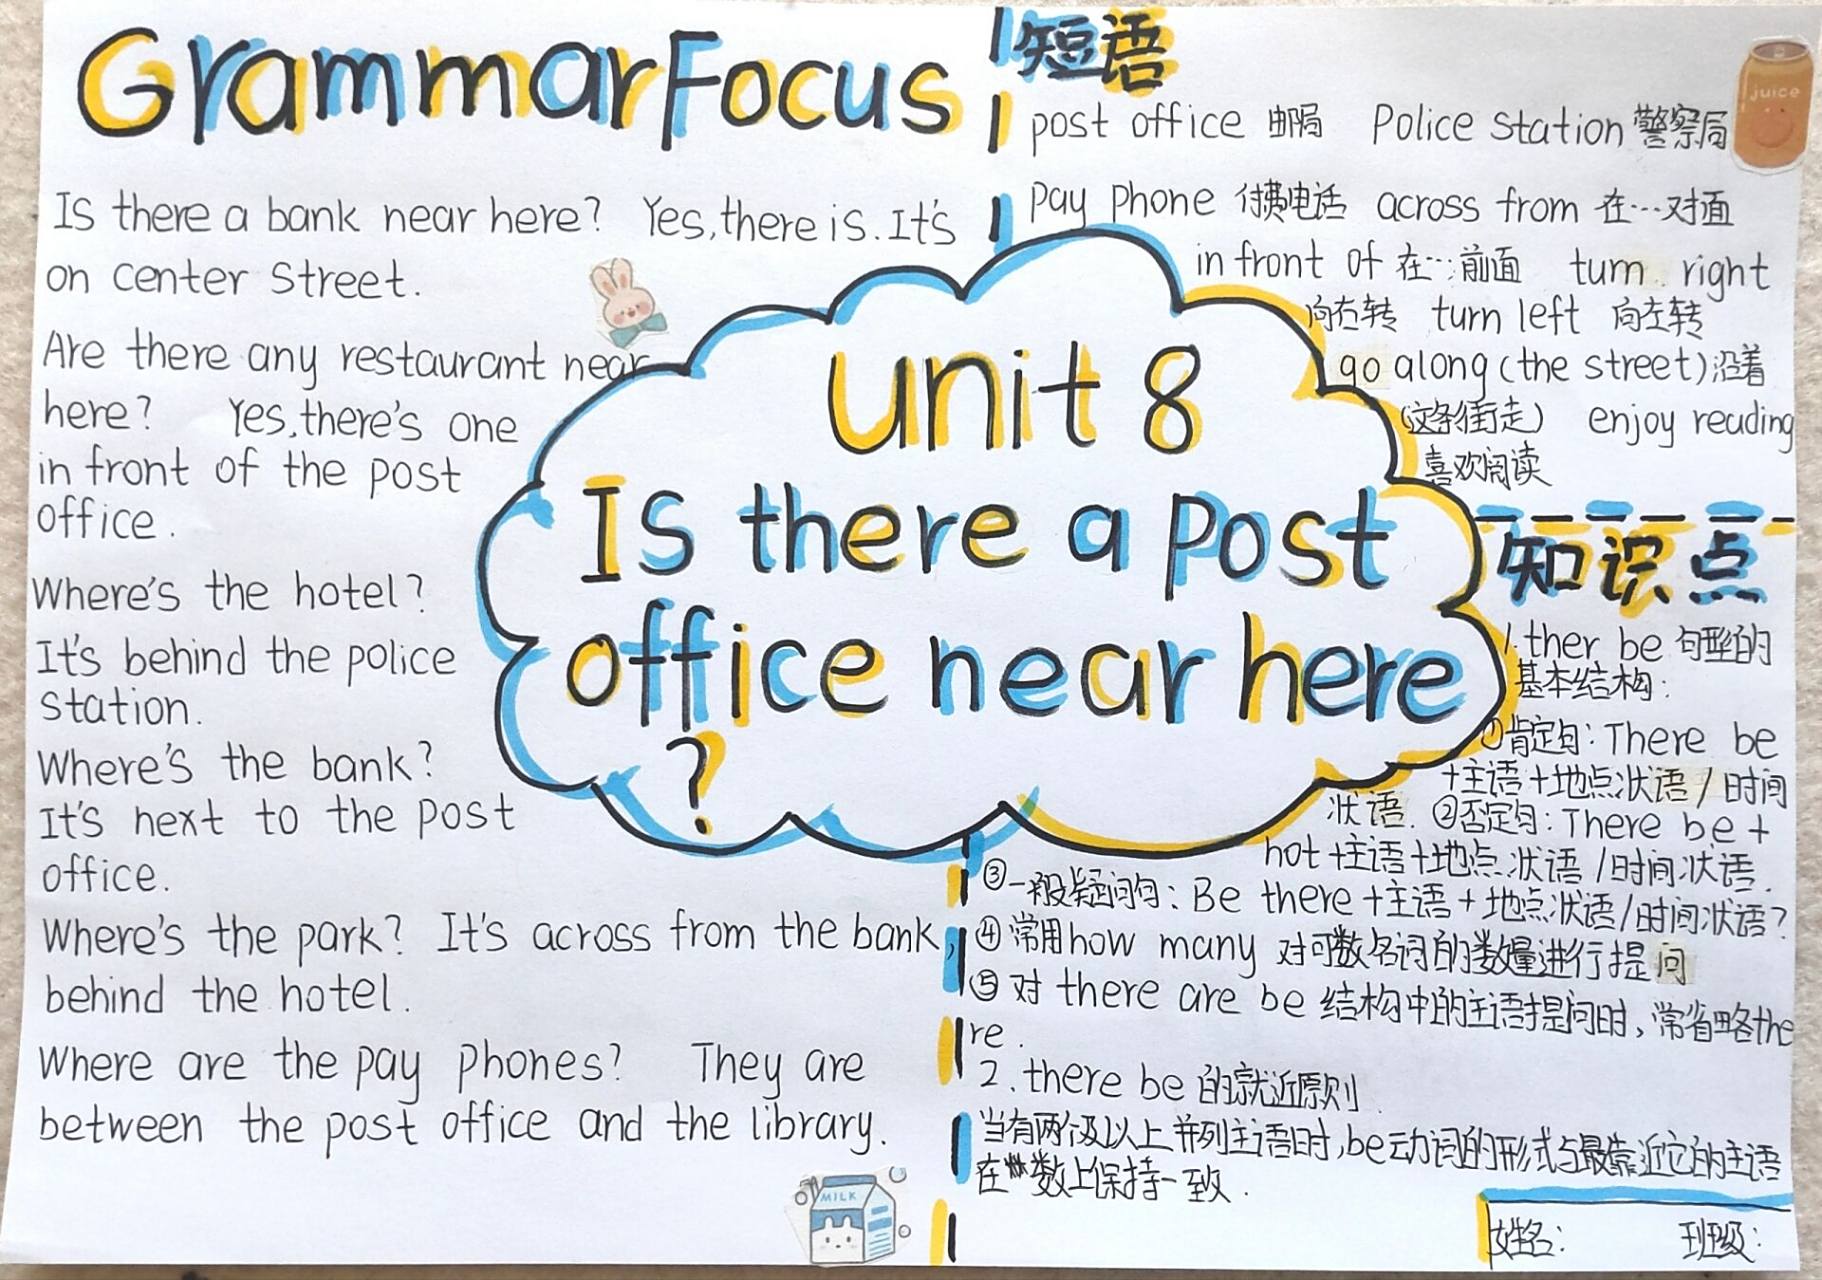 GrammarFocus
Is there a bank near here? Yes,there is. It's
on center Street.
Are there any restaurant near
here? Yes,there's one
in front of the post
office.
Where's the hotel?
It's behind the police
station.
Where's the bank?
It's next to the post
office.
Where's the park? It's across from the bank,
behind the hotel.
Where are the pay phones? They are
between the post office and the library.
unit 8
Is there a post
office near here
?
短语
post office 邮局 Police Station 警察局
Pay Phone 付费电话 across from 在…对面
in front of 在…前面 turn right
向右转 turn left 向左转
go along(the street)沿着
(这条街走) enjoy reading
喜欢阅读
知识点
1.ther be 句型的
基本结构:
①肯定句:There be
+主语+地点状语/时间
状语.②否定句:There be+
not+主语+地点状语/时间状语.
③一般疑问句:Be there+主语+地点状语/时间状语?
④常用how many 对可数名词的数量进行提问
⑤对 there are be 结构中的主语提问时,常省略the
re.
2.there be 的就近原则
当有两个及以上并列主语时,be动词的形式与最靠近它的主语
在数上保持一致.
姓名: 班级:
juice
MILK